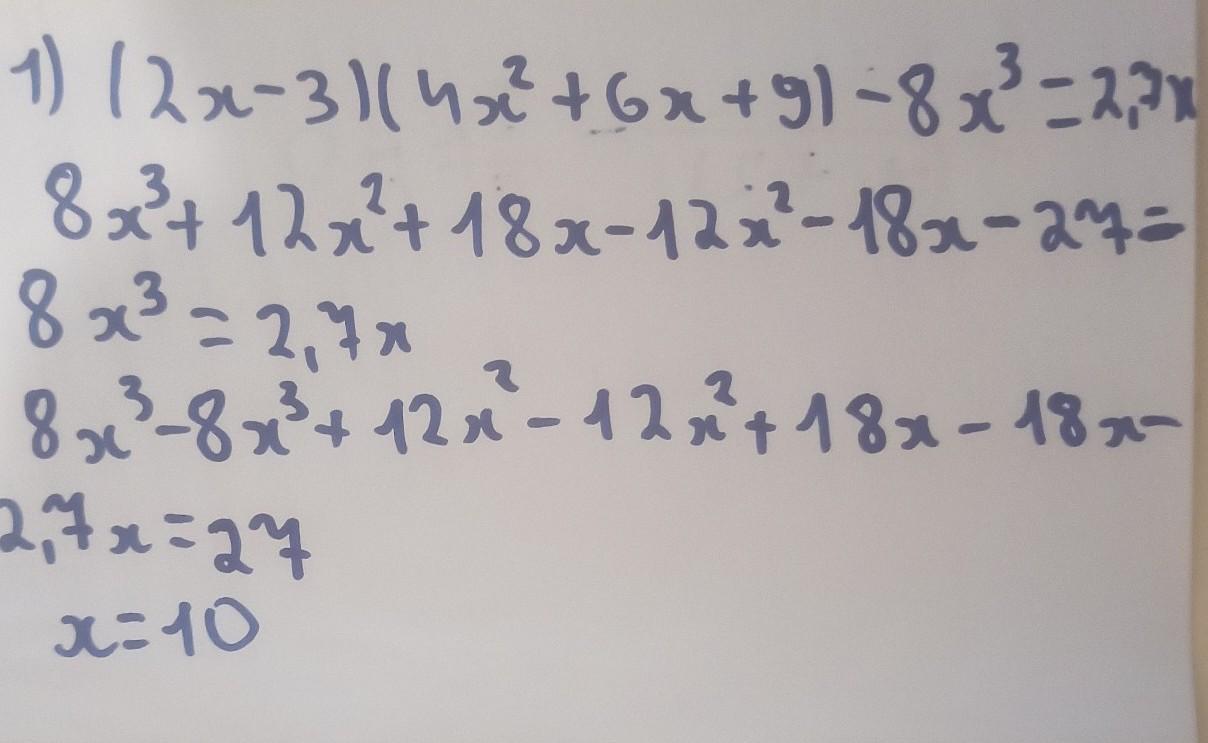 1) (2x-3)(4x²+6x+9)-8x³=2,7x
8x³+12x²+18x-12x²-18x-27=
8x³=2,7x
8x³-8x³+12x²-12x²+18x-18x-
2,7x=27
x=10